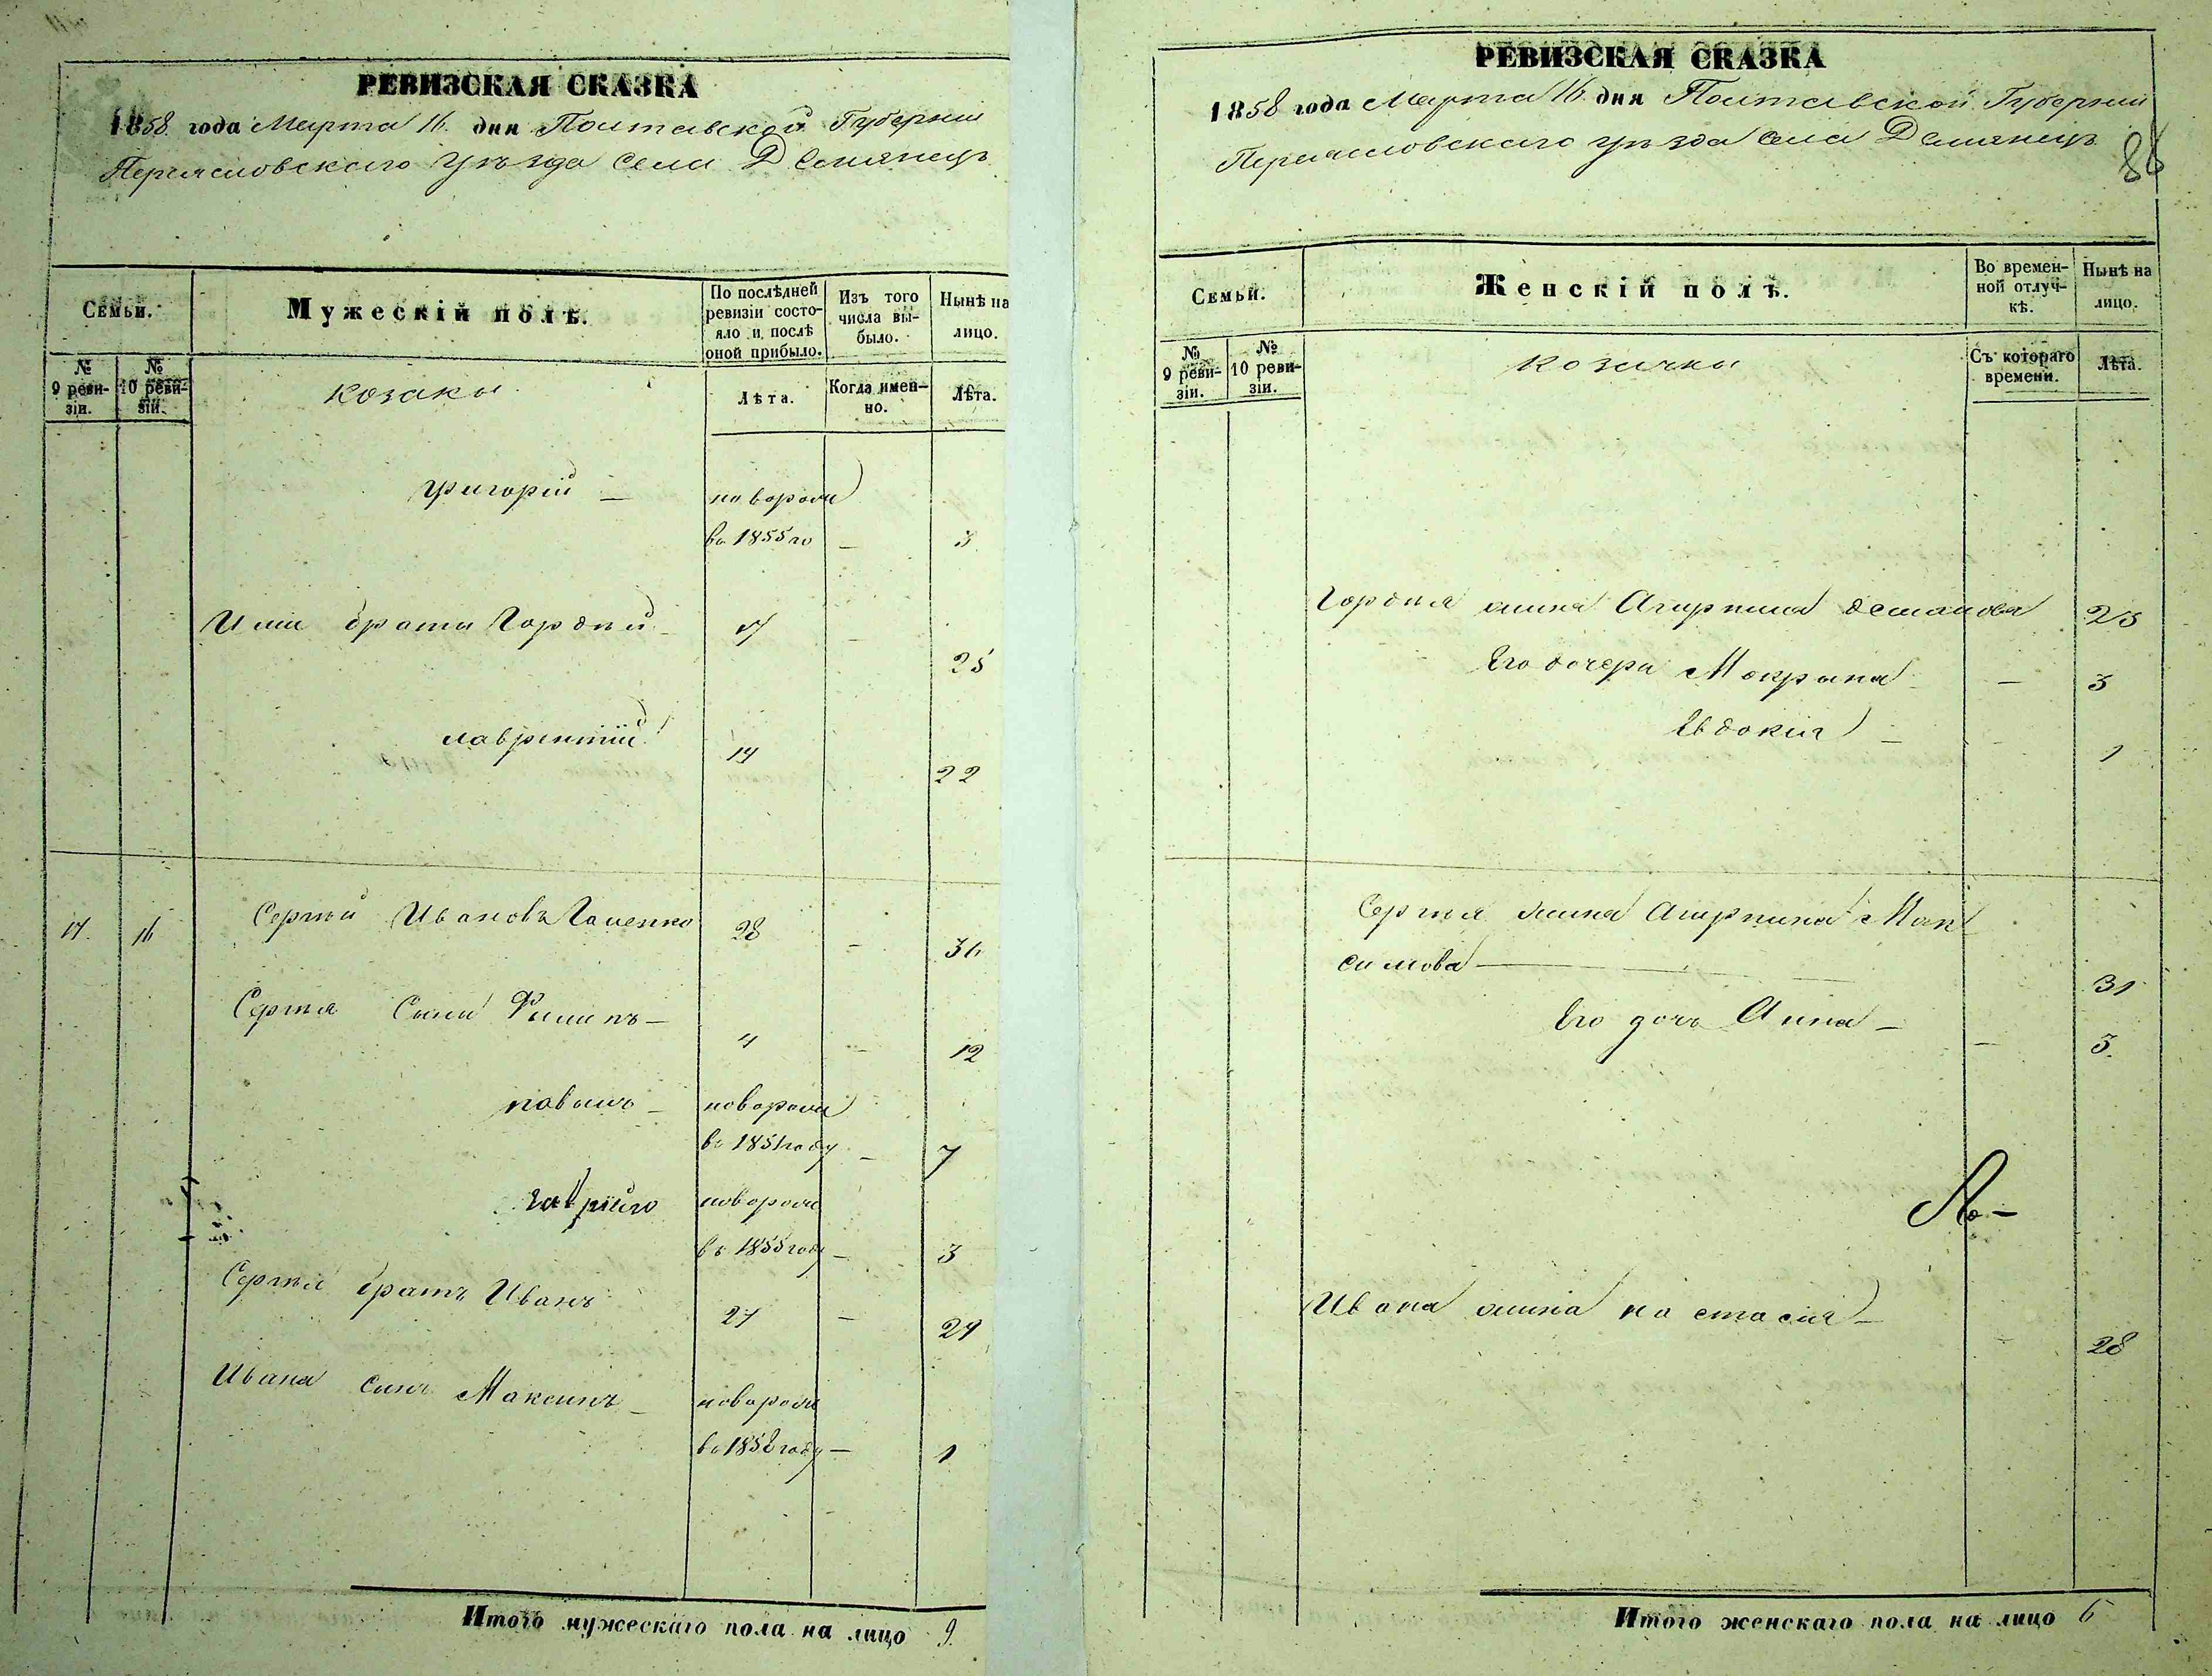 РЕВИЗСКАЯ СКАЗКА
1858 года Марта 16 дня Полтавской Губернии
Переясловскаго уѣзда Села Демянецъ
Семьи.
Мужескій полъ.
По послѣдней ревизіи состояло и послѣ оной прибыло.
Изъ того числа выбыло.
Нынѣ на лицо.
№ 9 ревизіи.
№ 10 ревизіи.
козаки
Лѣта.
Когда именно.
Лѣта.
Григорій —
новорожд
въ 1855 го — 3
братъ Гордѣй — 17 — 25
лаврентій 14 22
17 16 Сергѣй Ивановъ 28 — 36
Сергѣя Сыны Филипъ — 4 — 12
павелъ —
въ 1851 году — 7
гавріилъ
въ 1855 году — 3
Сергѣя братъ Иванъ 21 — 29
Ивана сынъ Максимъ —
въ 1858 году — 1
Итого мужескаго пола на лицо 9.
РЕВИЗСКАЯ СКАЗКА
1858 года Марта 16 дня Полтавской Губернии
Переясловскаго уѣзда Села Демянецъ
86
Семьи.
Женскій полъ.
Во временной отлучкѣ.
Нынѣ на лицо.
№ 9 ревизіи.
№ 10 ревизіи.
козачки
Съ котораго времени.
Лѣта.
Гордѣя жина Агирпина 23
Его дочери Мокрына — 3
Евдокія — 1
Сергѣя жина Агирпина Мак
симова — 31
Его дочь Анна — 3.
Ивана жина настасия — 28
Итого женскаго пола на лицо 6